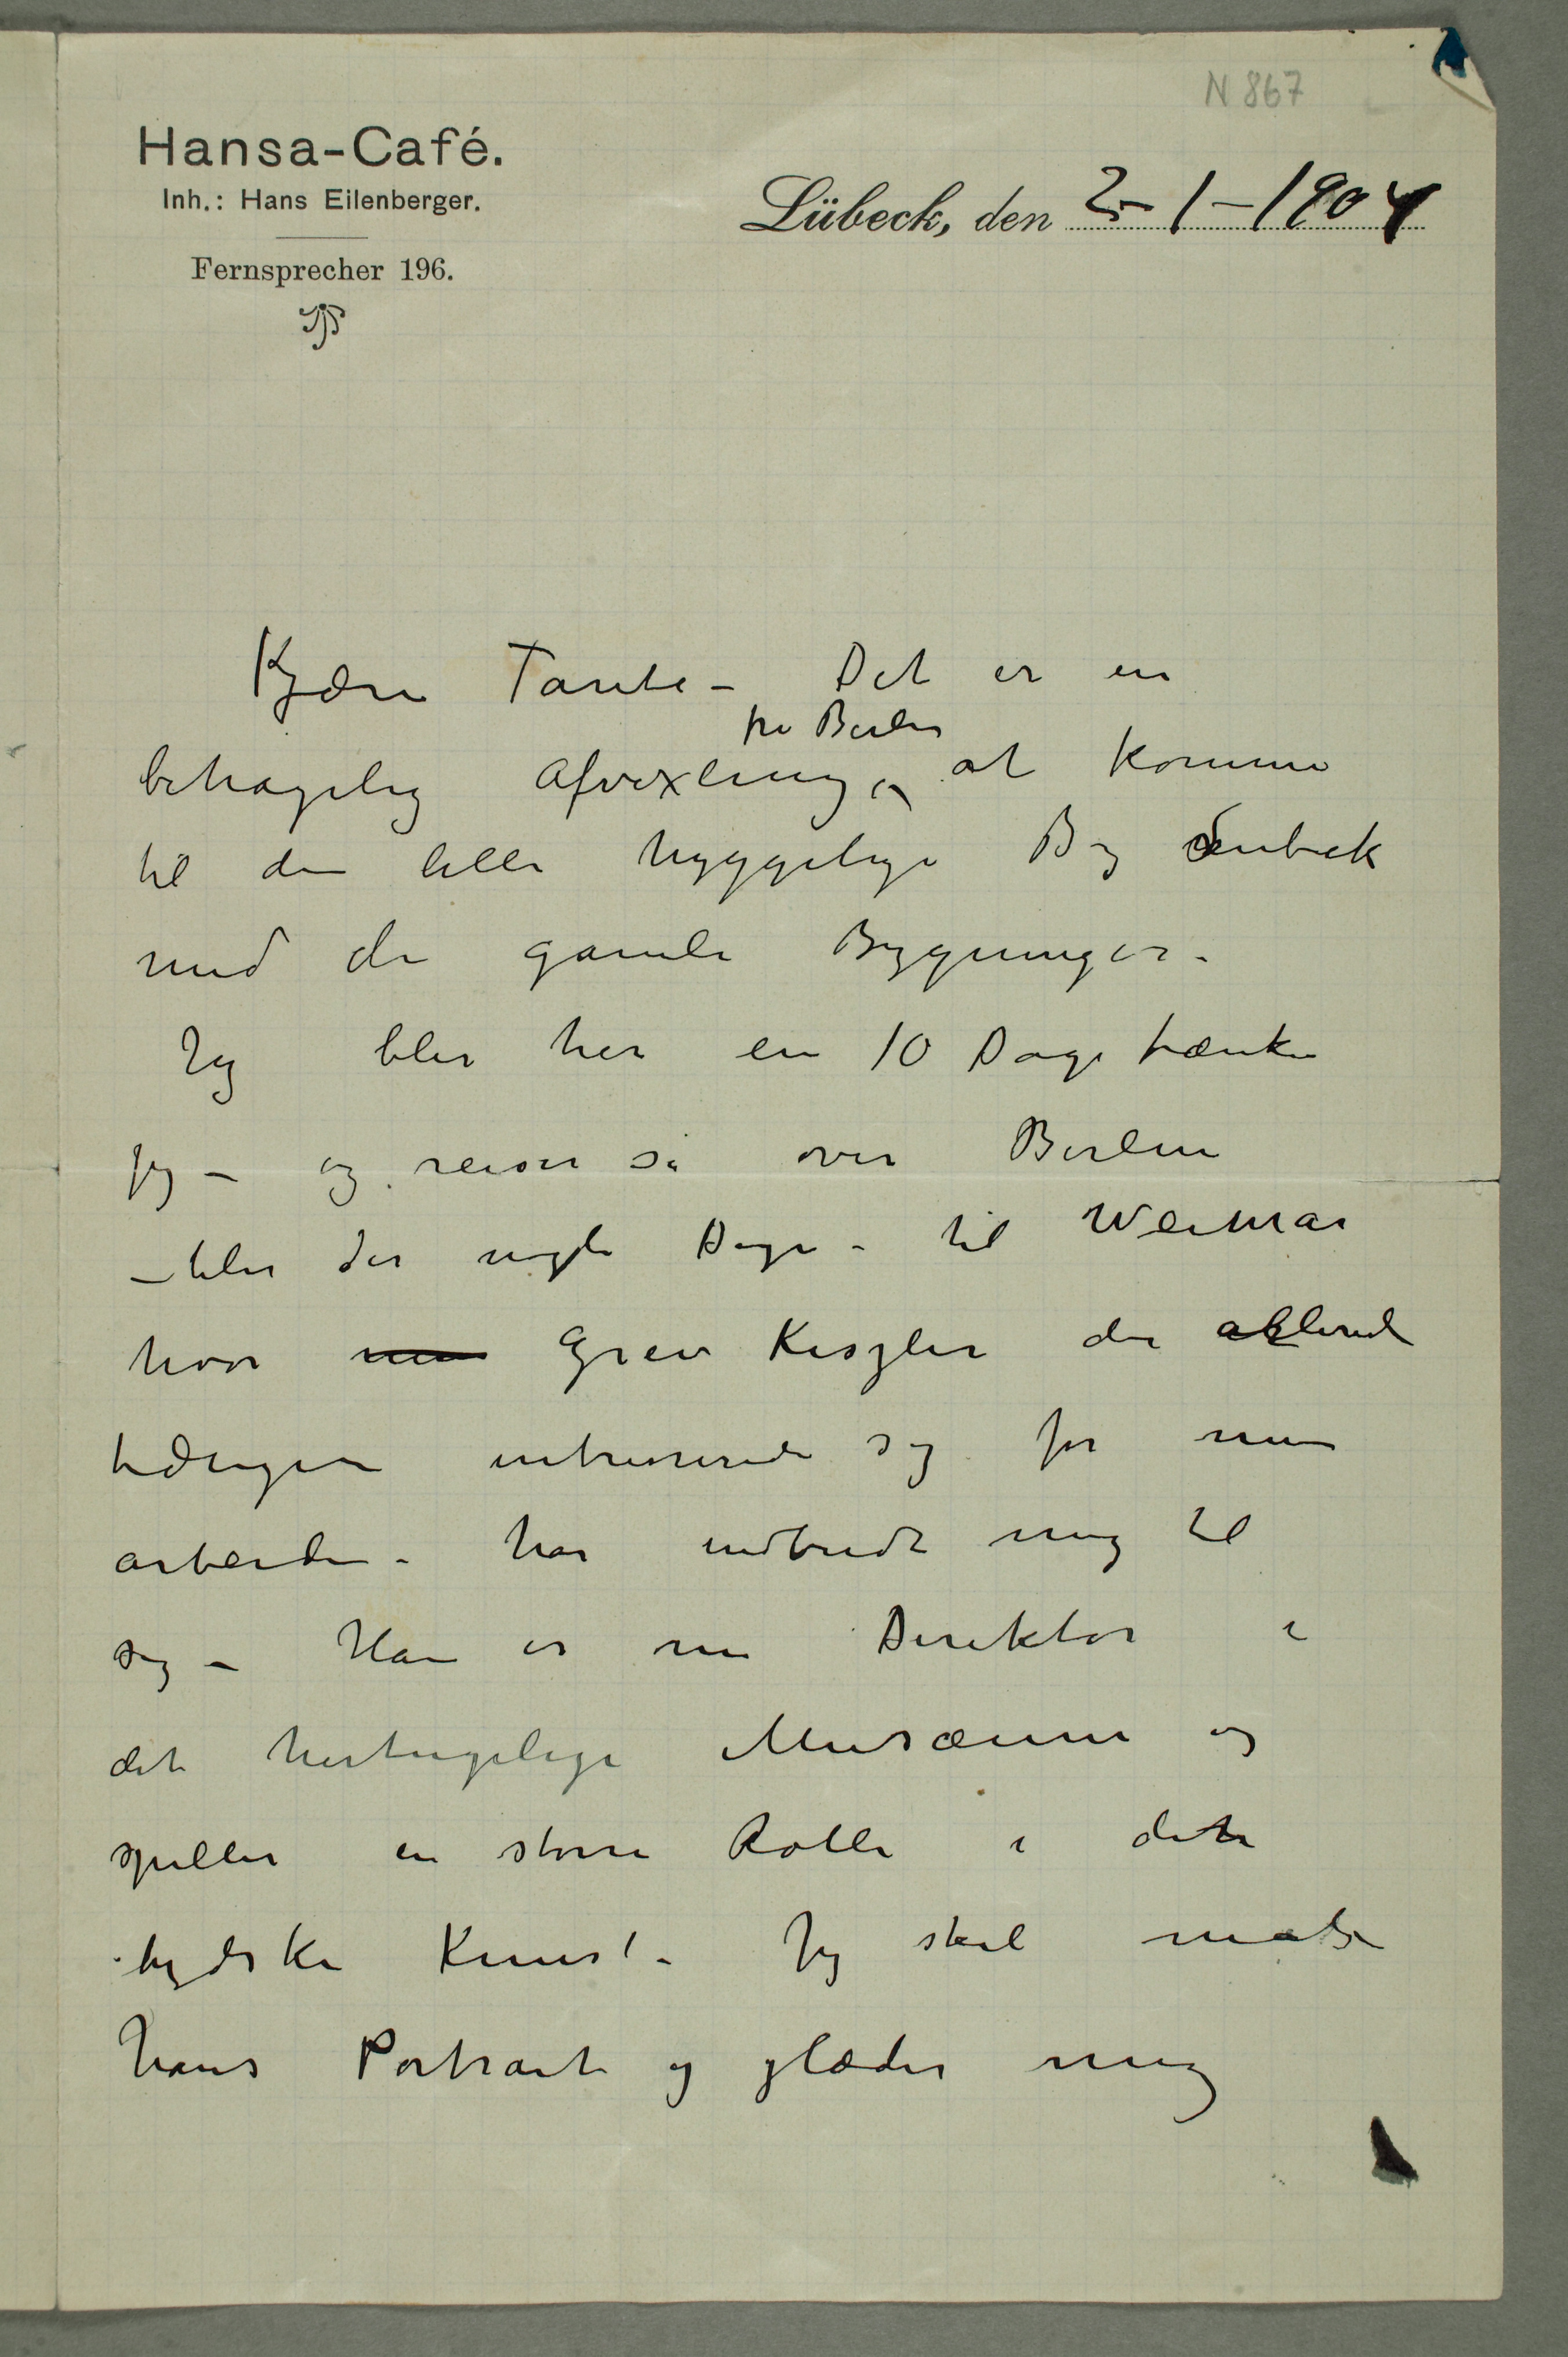 N 867
Hansa-Café.
Inh.: Hans Eilenberger.
Fernsprecher 196.
Lübeck, den 2-1-1904
Kjære Tante – Det er en
fra Berlin
behagelig Afvexling, at komme
til den lille hyggelige By Lübek
med de gamle Bygninger.
Jeg blir her en 10 Dage tænker
jeg – og reiser så over Berlin
– blir der nogle Dage – til Weimar
hvor Grev Keszler der allerede
tidligere intresserede sig for mine
arbeider – har indbudt mig til
sig – Han er nu Direktør i
det hertugelige Musæum og
spiller en større Rolle i den
tydske Kunst – Jeg skal male
hans Portræt og glæder mig